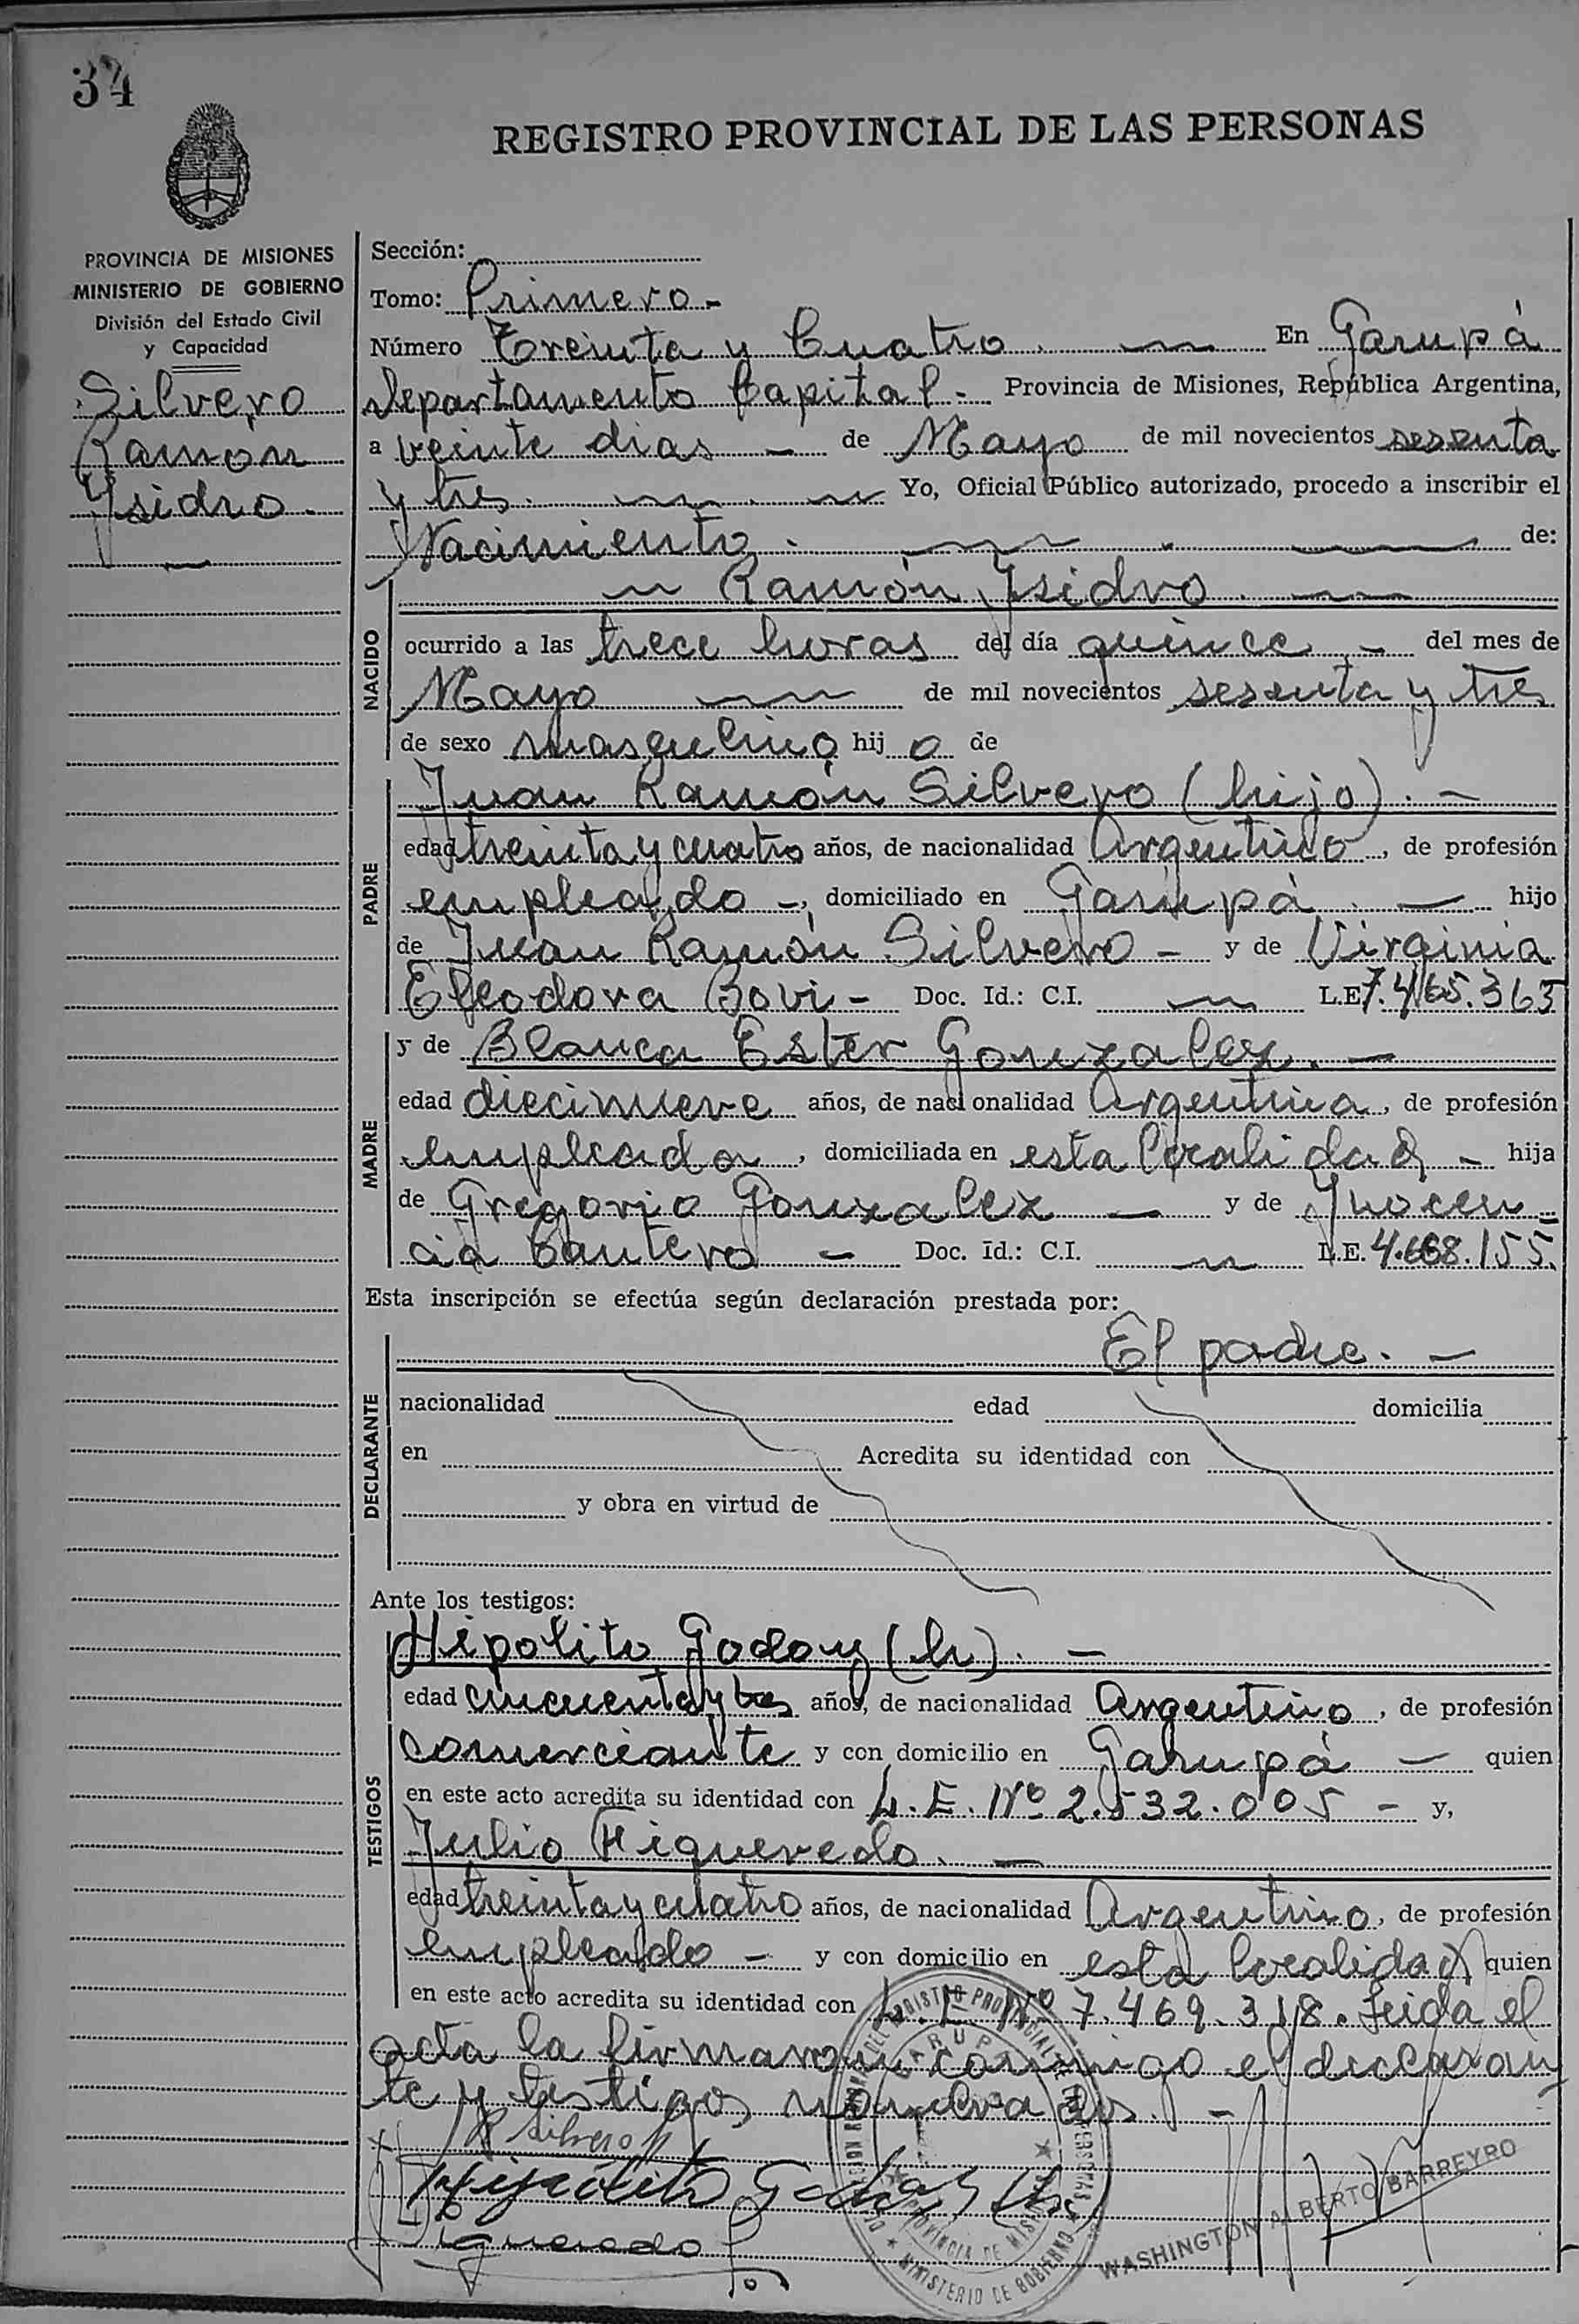 34
REGISTRO PROVINCIAL DE LAS PERSONAS
PROVINCIA DE MISIONES
MINISTERIO DE GOBIERNO
División del Estado Civil
y Capacidad
Silvero
Ramón
Ysidro.
Sección:
Tomo: Primero.-
Número Treinta y Cuatro. En Garupá
Departamento Capital.- Provincia de Misiones, República Argentina,
a veinte dias - de Mayo de mil novecientos sesenta
y tres. Yo, Oficial Público autorizado, procedo a inscribir el
Nacimiento. de:
Ramón Ysidro.
NACIDO
ocurrido a las trece horas del día quince.- del mes de
Mayo de mil novecientos sesenta y tres
de sexo masculino hij o de
PADRE
Juan Ramón Silvero (hijo).-
edad treinta y cuatro años, de nacionalidad Argentino, de profesión
empleado -, domiciliado en Garupá. - hijo
de Juan Ramón Silvero - y de Virginia
Eleodora Bovi - Doc. Id.: C.I. L.E. 7.465.365
MADRE
y de Blanca Ester Gonzalez.-
edad diecinueve años, de nacionalidad Argentina, de profesión
empleada, domiciliada en esta localidad - hija
de Gregorio Gonzalez - y de Ynocen=
cia Cantero - Doc. Id.: C.I. L.E. 4.668.155.
Esta inscripción se efectúa según declaración prestada por:
DECLARANTE
El padre.-
nacionalidad edad domicilia
en Acredita su identidad con
y obra en virtud de
Ante los testigos:
TESTIGOS
Hipolito Godoy (h).-
edad cincuenta y tres años, de nacionalidad Argentino, de profesión
comerciante y con domicilio en Garupá - quien
en este acto acredita su identidad con L.E. Nº 2.532.005 - y,
Julio Figueredo.-
edad treinta y cuatro años, de nacionalidad Argentino, de profesión
empleado - y con domicilio en esta localidad quien
en este acto acredita su identidad con L.E. Nº 7.469.318. Leida el
acta la firmaron conmigo el declaran
te y testigos nombrados.-
Silvero
Hipolito Godoy (h)
Figueredo
WASHINGTON ALBERTO BARREYRO
REGISTRO PROVINCIAL DE LAS PERSONAS
GARUPA
PROVINCIA DE MISIONES
MINISTERIO DE GOBIERNO